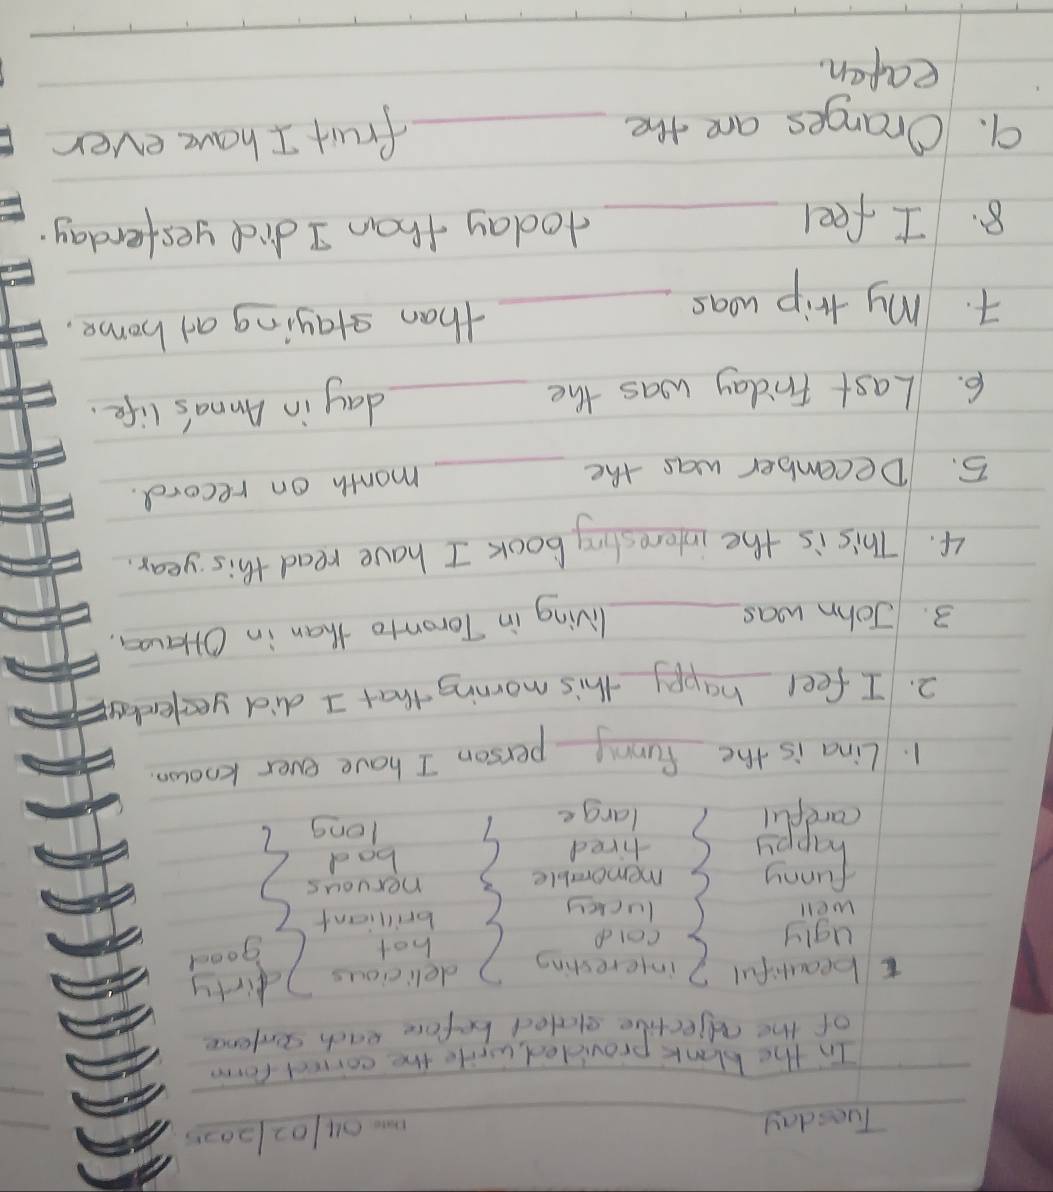 Tuesday Date 04/02/2025
In the blank provided, write the correct form
of the adjective stated before each sentence
beautiful interesting delicious dirty
ugly cold hot good
well lucky brilliant
funny memorable nervous
happy tired bad
careful large long
1. Lina is the funny person I have ever known.
2. I feel happy this morning that I did yesterday
3. John was living in Toronto than in Ottawa.
4. This is the interesting book I have read this year.
5. December was the month on record.
6. Last Friday was the day in Anna's life.
7. My trip was than staying at home.
8. I feel today than I did yesterday.
9. Oranges are the fruit I have ever
eaten.